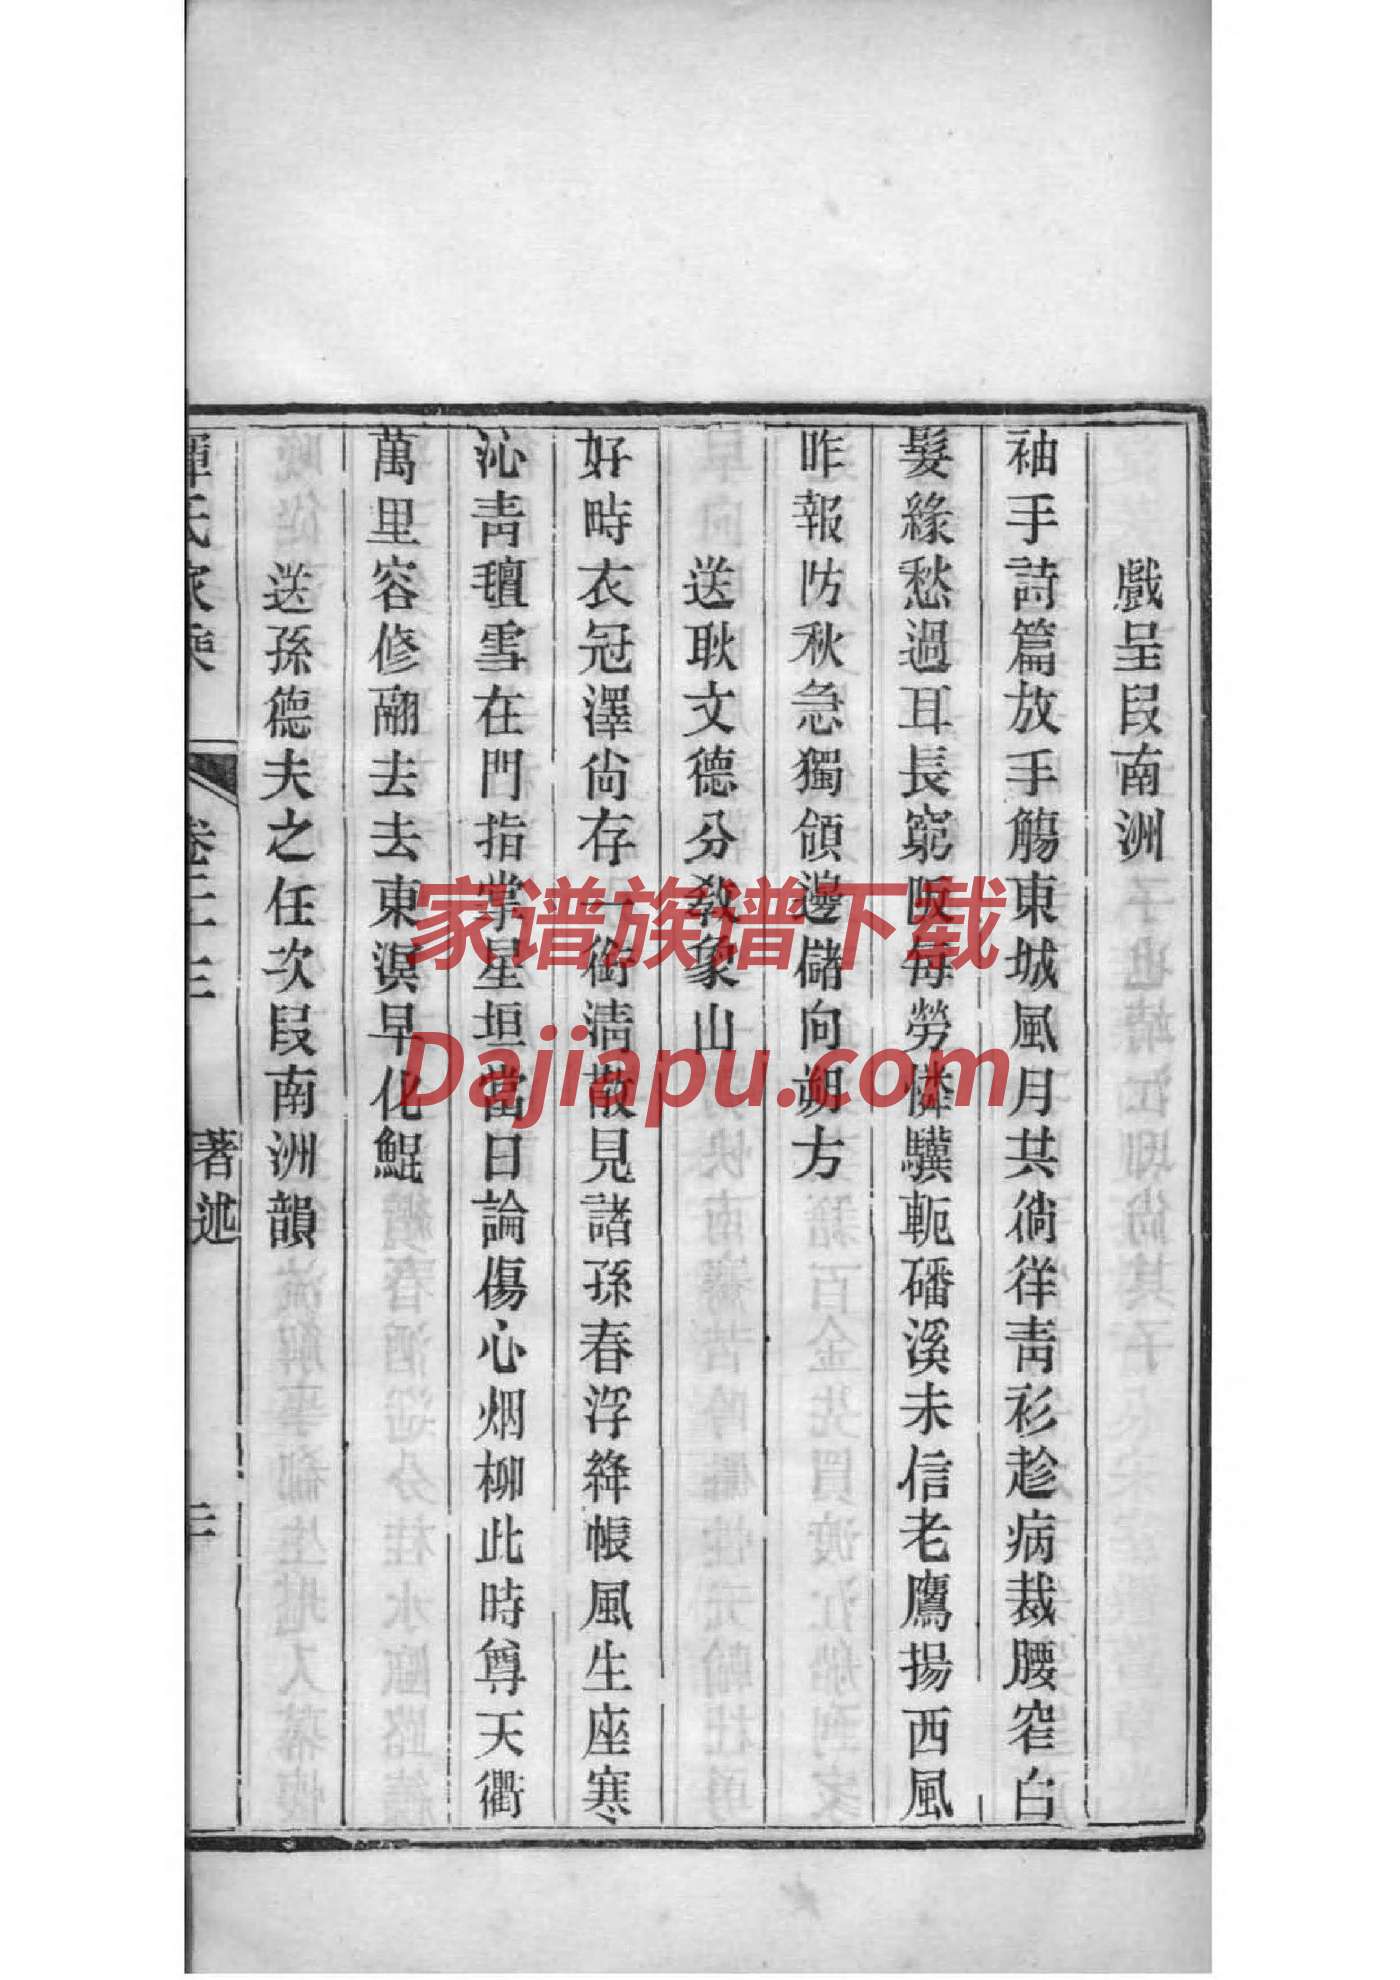 戲呈段南洲
袖手詩篇放手觴東城風月共徜徉靑衫趁病裁腰窄白
髮緣愁過耳長窮阪每勞憐驥軛磻溪未信老鷹揚西風
昨報防秋急獨領邊儲向朔方
送耿文德分敎象山
好時衣冠澤尙存一銜淸散見諸孫春浮絳帳風生座寒
沁靑氊雪在門指掌星垣當日論傷心烟柳此時尊天衢
萬里容修翮去去東溟早化鯤
送孫德夫之任次段南洲韻
氏家乘
著述
家谱族谱下载
Dajiapu.com